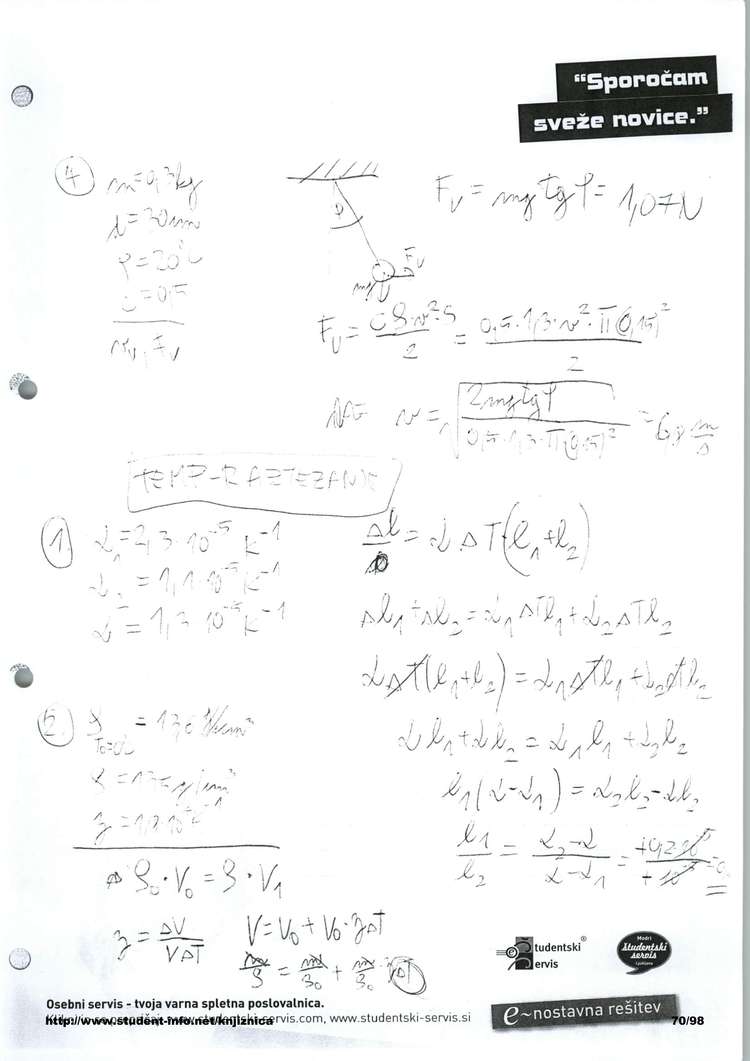 “Sporočam
sveže novice.”
4
l=30cm
φ=20°C
c=0,5
φ
F_v
mg
F_v = mg tg φ = 1,07N
F_v = cρ·v²·S/2 = 0,5·1,3·v²·π(0,15)²/2
v = √(2mg tg φ / 0,5·1,3·π(0,15)²) = 6,8 m/s
TEMP-RAZTEZANJE
1.
α₁=2,3·10⁻⁵ K⁻¹
α₂=1,1·10⁻⁵ K⁻¹
α=1,3·10⁻⁵ K⁻¹
Δl = α ΔT(l₁+l₂)
Δl₁+Δl₂ = α₁ΔTl₁+α₂ΔTl₂
αΔT(l₁+l₂) = α₁ΔTl₁+α₂ΔTl₂
αl₁+αl₂ = α₁l₁+α₂l₂
l₁(α-α₁) = α₂l₂-αl₂
l₁/l₂ = (α₂-α)/(α-α₁) =
2.
ρ₀·V₀ = ρ·V₁
γ = ΔV/VΔT
V=V₀+V₀·γΔT
m/ρ = m/ρ₀ + m/ρ₀·γΔT
Študentski®
Servis
Modri
študentski
servis
Ljubljana
Osebni servis - tvoja varna spletna poslovalnica.
http://www.student-info.net/knjiznica
www.studentski-servis.com, www.studentski-servis.si
e~nostavna rešitev
70/98